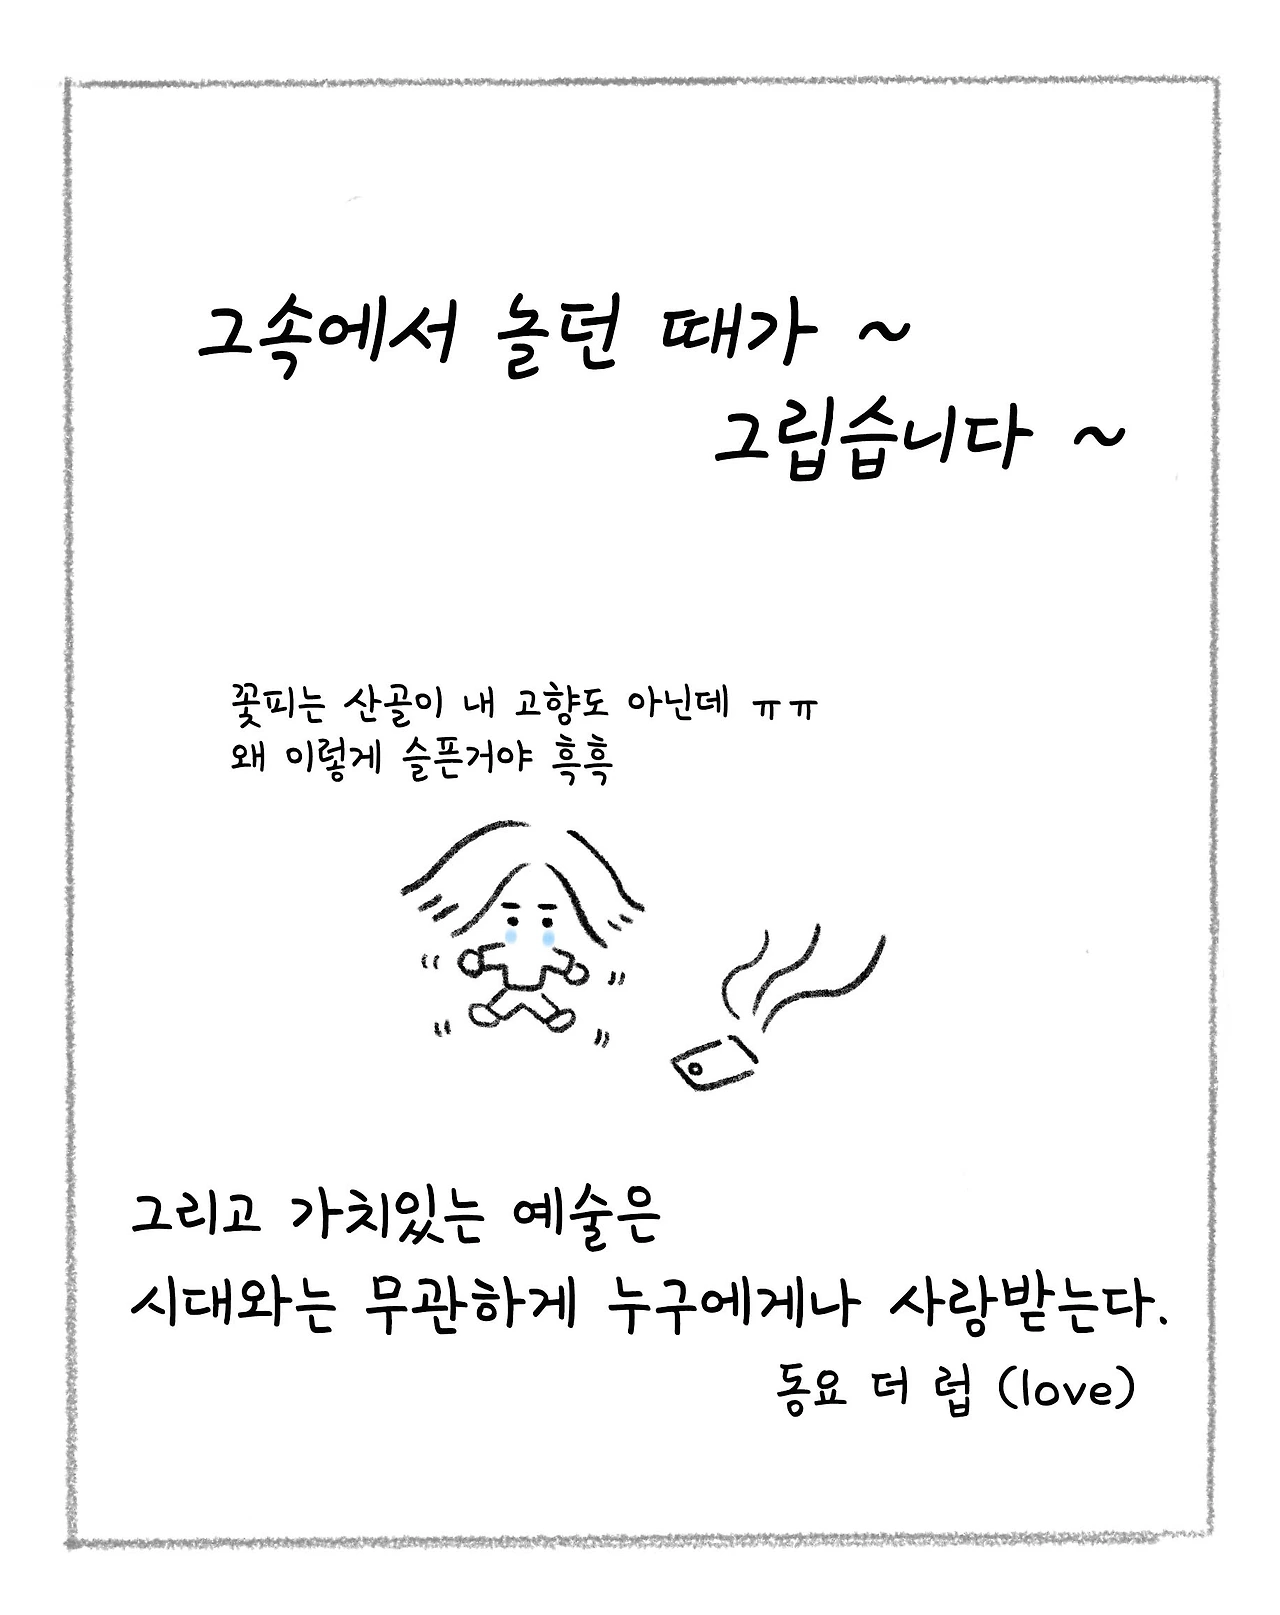 그속에서 놀던 때가 ~
그립습니다 ~
꽃피는 산골이 내 고향도 아닌데 ㅠㅠ
왜 이렇게 슬픈거야 흑흑
그리고 가치있는 예술은
시대와는 무관하게 누구에게나 사랑받는다.
동요 더 럽 (love)